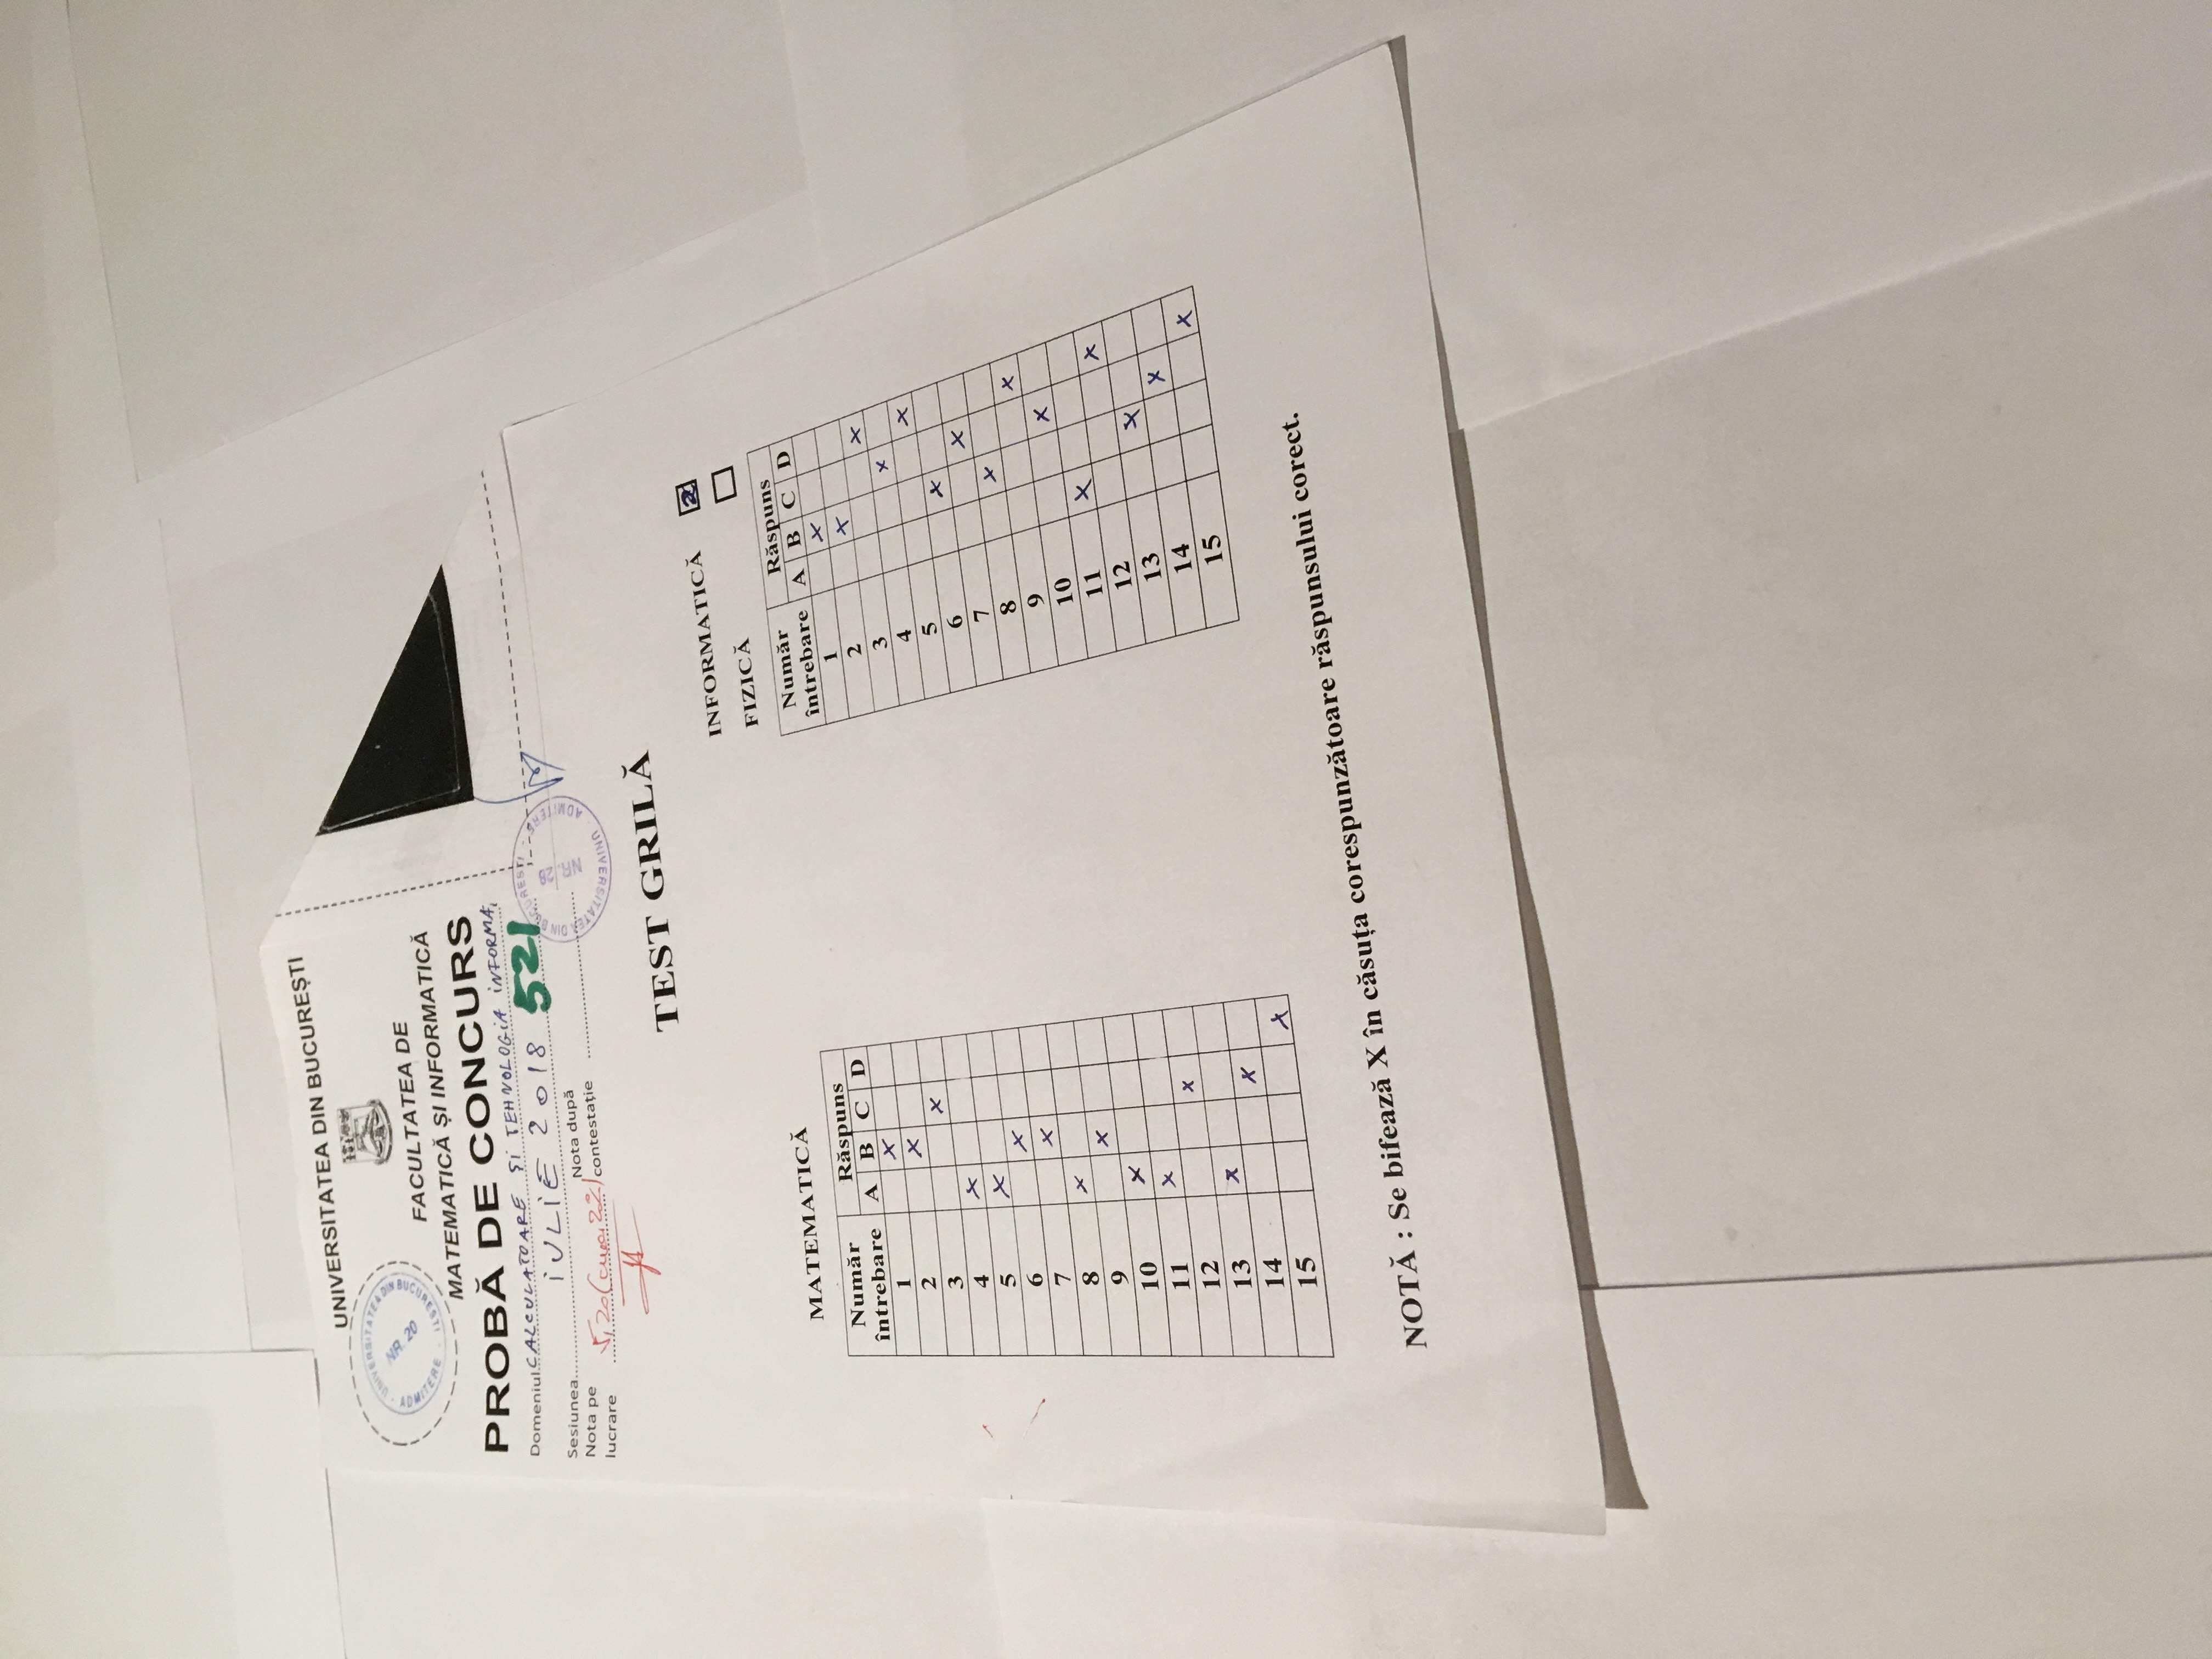 UNIVERSITATEA DIN BUCUREȘTI
UNIVERSITATEA DIN BUCUREȘTI · ADMITERE ·
NR. 20
FACULTATEA DE
MATEMATICĂ ȘI INFORMATICĂ
PROBĂ DE CONCURS
Domeniul CALCULATOARE ȘI TEHNOLOGIA INFORMA.
Sesiunea IULIE 2018 521
Nota pe lucrare 5,20
Nota după contestație
UNIVERSITATEA DIN BUCUREȘTI · ADMITERE ·
NR. 26
TEST GRILĂ
INFORMATICĂ
FIZICĂ
MATEMATICĂ
Număr întrebare Răspuns
A B C D
1 X
2 X
3 X
4 X
5 X
6 X
7 X
8 X
9 X
10 X
11 X
12 X
13 X
14 X
15 X
Număr întrebare Răspuns
A B C D
1 X
2 X
3 X
4 X
5 X
6 X
7 X
8 X
9 X
10 X
11 X
12 X
13 X
14 X
15 X
NOTĂ : Se bifează X în căsuța corespunzătoare răspunsului corect.